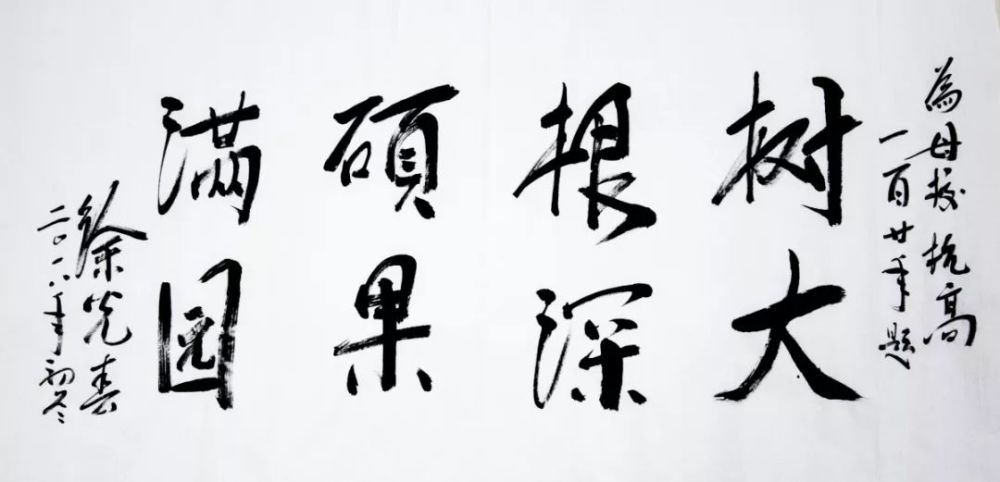 為母校杭高
一百廿年題
树大
根深
碩果
滿园
徐光春
二〇一八年初冬